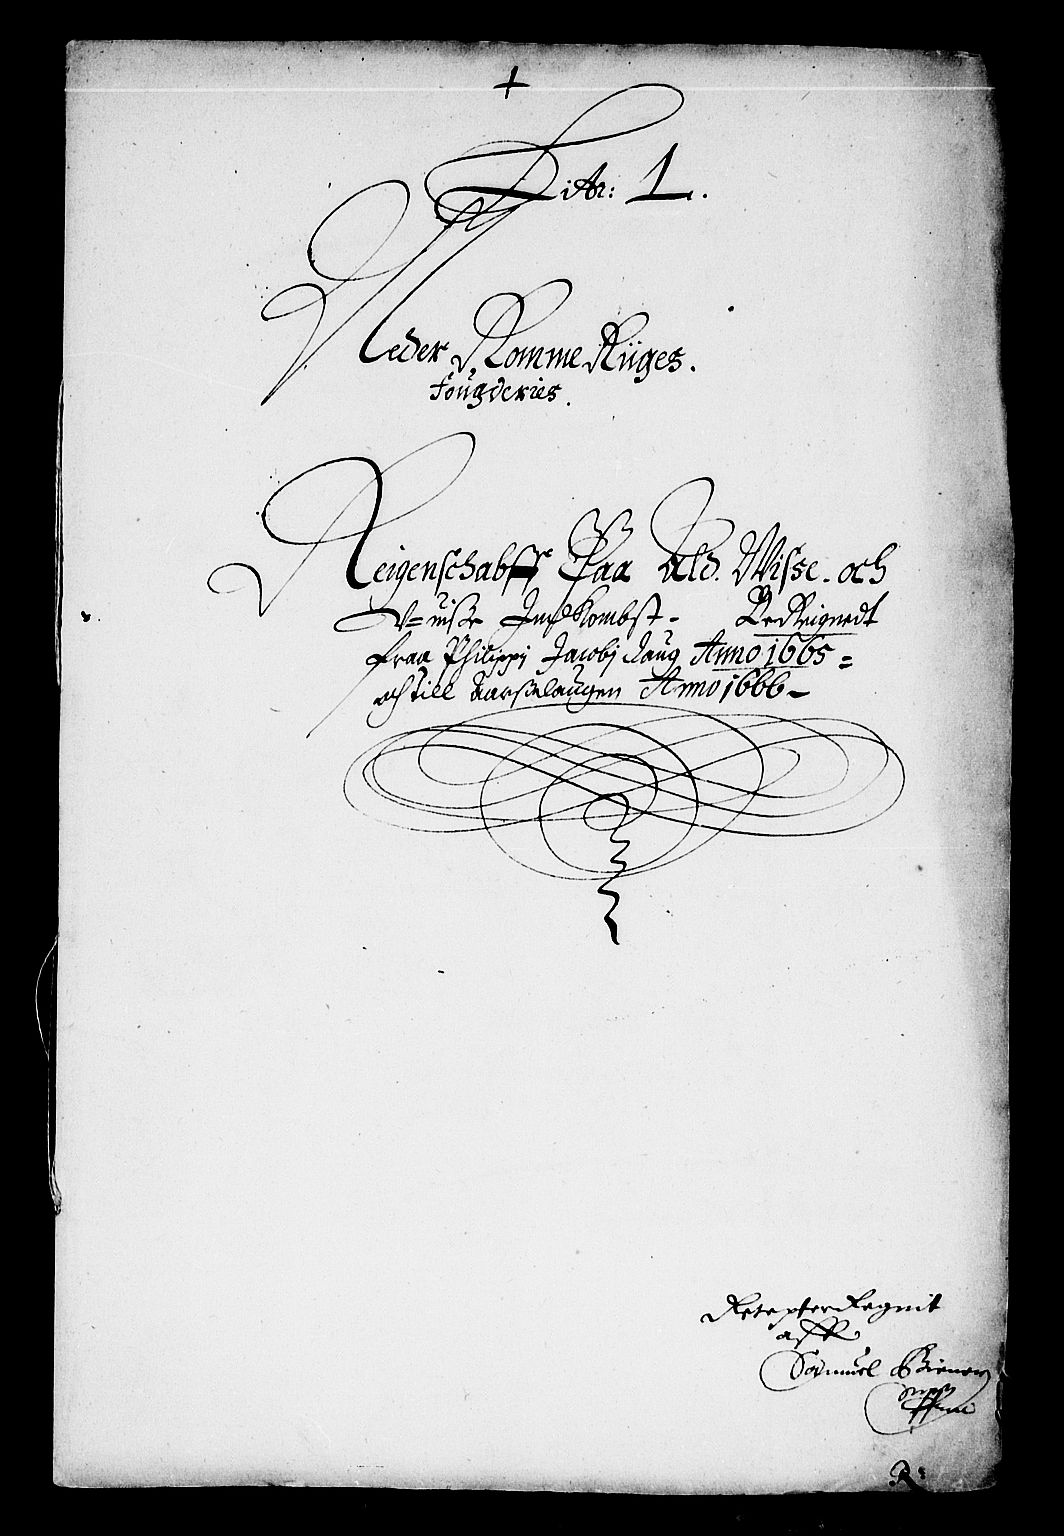 Litr: 1.
Neder Romme Riiges.
fougderies.
Reigenschabff Paa Ald. Wisse. och
V=uiße Indkombst. BeReignedt
fraa Philippi Jacobj daug Anno 1665 =
och till Aarßdaugen Anno 1666 –
Reignit
aff
Samuel
R: